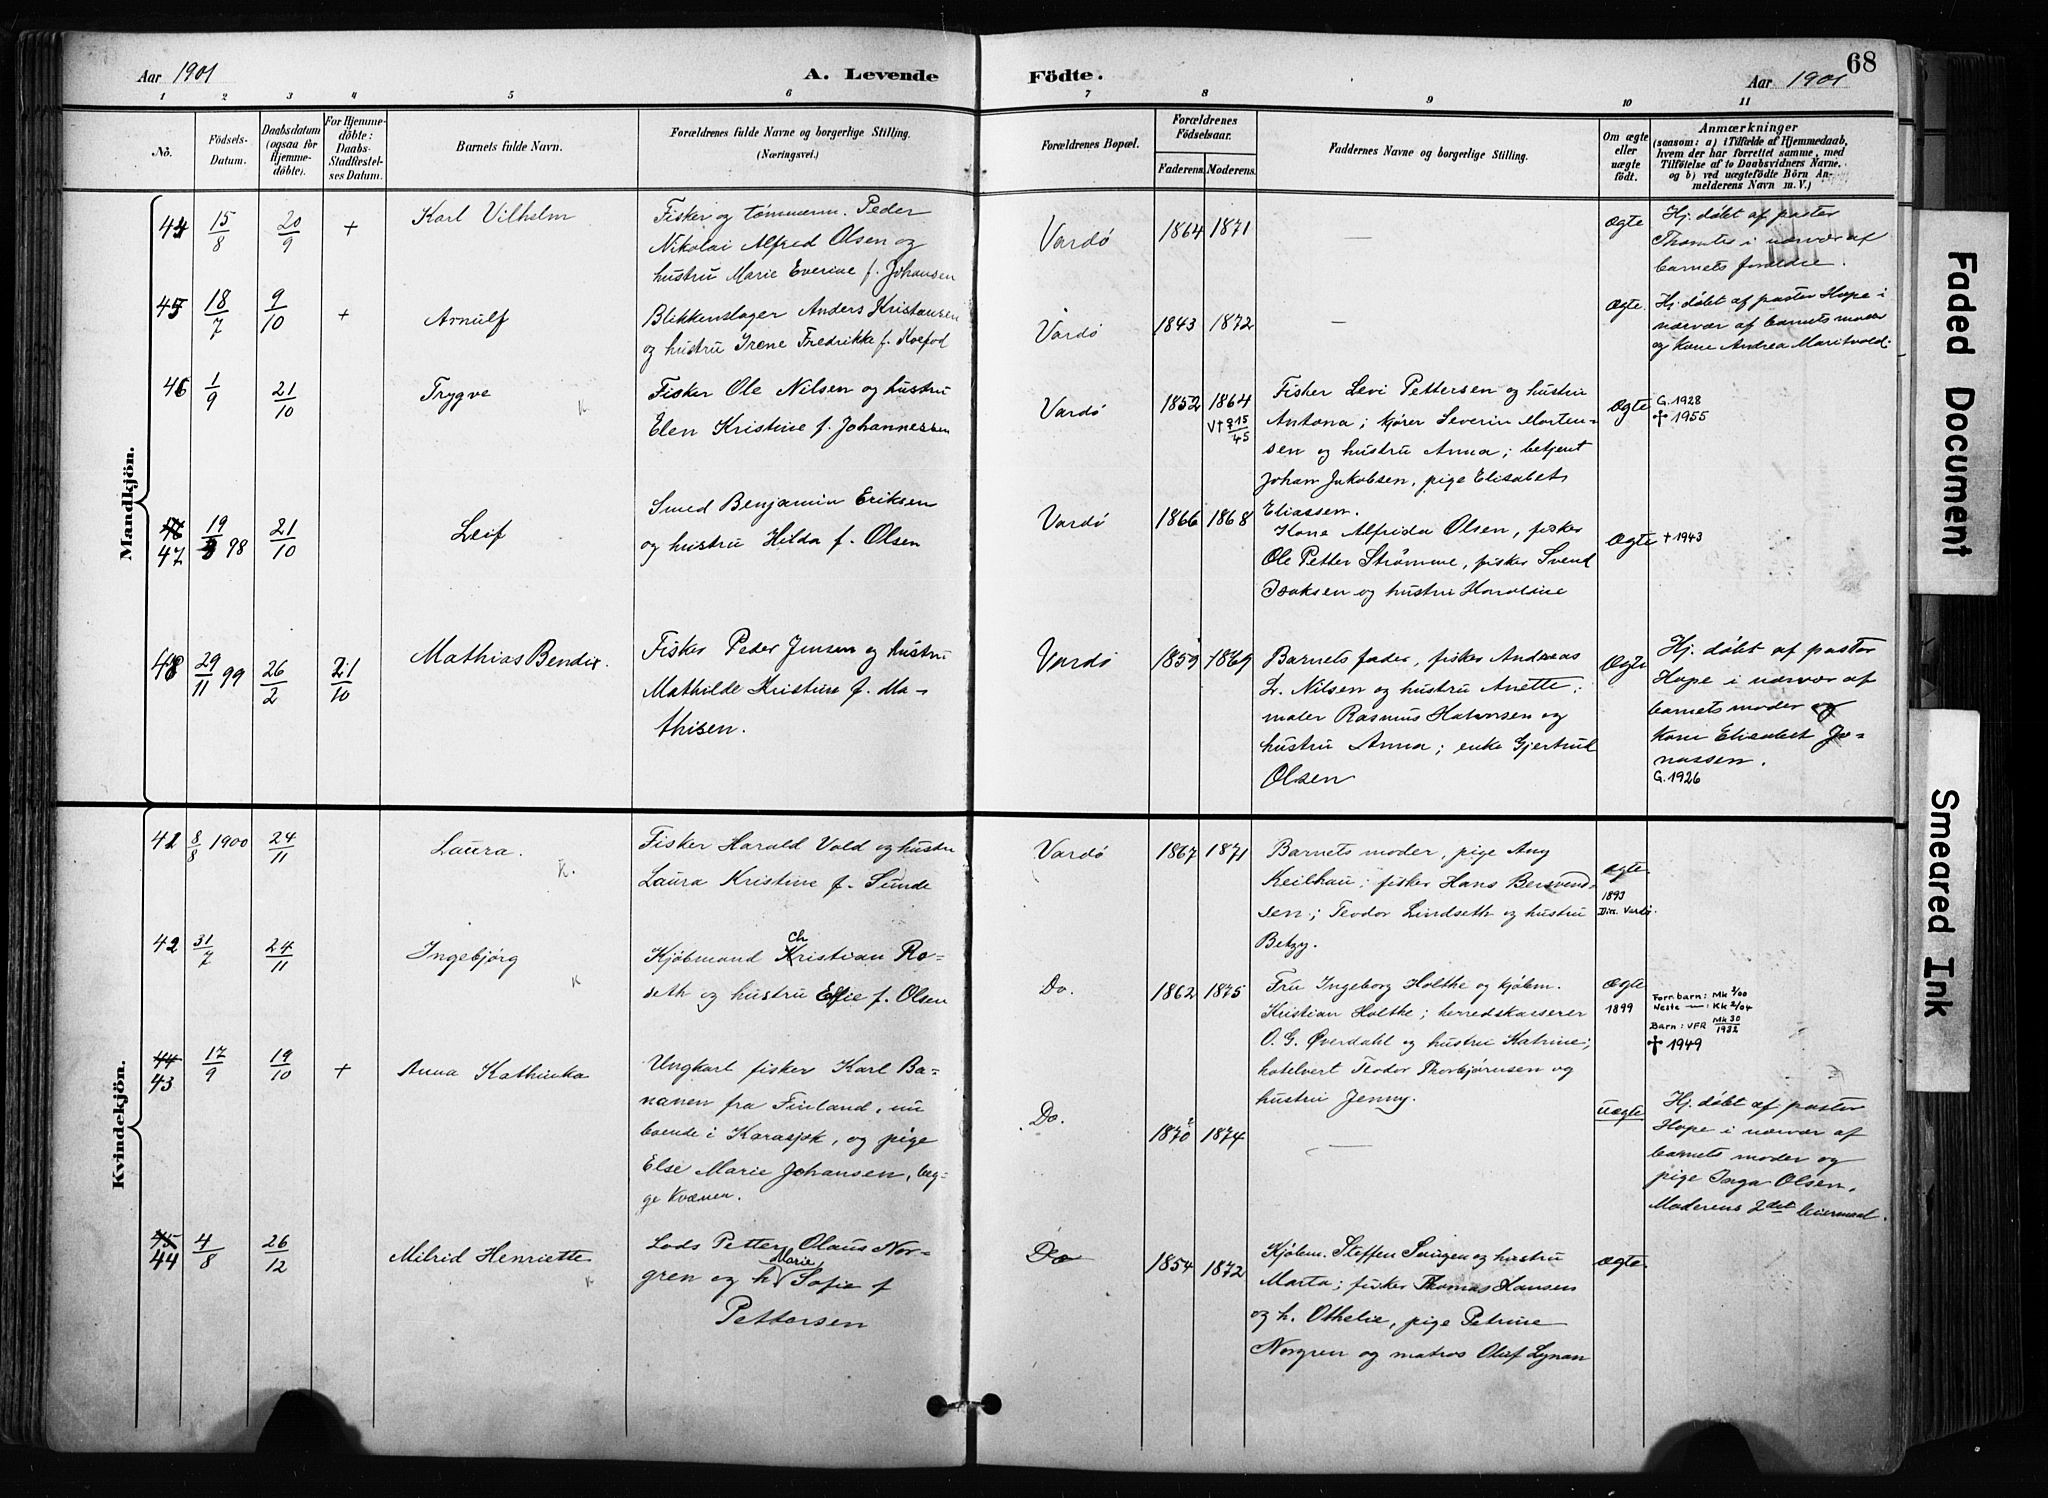 68
Aar 1901
A. Levende
Födte.
Aar 1901
1 2 3 4 5 6 7 8 9 10 11
No.
Födsels-
Datum.
Daabsdatum
(ogsaa for
Hjemme-
döbte).
For Hjemme-
döbte:
Daabs-
Stadfæstel-
ses Datum.
Barnets fulde Navn.
Forældrenes fulde Navne og borgerlige Stilling.
(Næringsvei.)
Forældrenes Bopæl.
Forældrenes
Födselsaar.
Faderens. Moderens.
Faddernes Navne og borgerlige Stilling.
Om ægte
eller
uægte
födt.
Anmærkninger
(saasom: a) i Tilfælde af Hjemmedaab,
hvem der har forrettet samme, med
Tilföielse af to Daabsvidners Navne,
og b) ved uægtefödte Börn An-
melderens Navn m. V.)
Mandkjön.
44 15/8 20/9 + Karl Vilhelm
Fisker og tømmerm. Peder
Nikolai Alfred Olsen og
hustru Marie Everine f. Johansen
Vardø 1864 1871 — Ægte
Hj. døbt af pastor
i nærvær af
barnets forældre.
45 18/7 9/10 + Arnulf
Blikkenslager Anders Kristansen
og hustru Irene Fredrikke f. Koefod
Vardø 1843 1872 — Ægte.
Hj. døbt af pastor Hope i
nærvær af barnets moder
og kone Andrea Maritvold.
46 1/9 21/10 Trygve K
Fisker Ole Nilsen og hustru
Elen Kristine f. Johannessen
Vardø 1852 1864
V† 9 15/45
Fisker Levi Pettersen og hustru
Antona; kjører Severin Morten-
sen og hustru Anna; betjent
Johan Jakobsen, pige Elisabet
Eliassen.
Ægte
G. 1928
† 1955
47 19/3 98 21/10 Leif
Smed Benjamin Eriksen
og hustru Hilda f. Olsen
Vardø 1866 1868
Kone Alfrida Olsen, fisker
Ole Petter Strømme, fisker Svend
Isaksen og hustru Haraldine
Ægte † 1943
48 29/11 99 26/2 21/10 Mathias Bendix.
Fisker Peder Jensen og hustru
Mathilde Kristine f. Ma-
thisen.
Vardø 1859 1869
Barnets fader, fisker Andreas
L. Nilsen og hustru Anette;
maler Rasmus Halvorsen og
hustru Anna; enke Gjertrud
Olsen
Ægte
Hj. døbt af pastor
Hope i nærvær af
barnets moder og
kone Elisabet Jo-
nassen.
G. 1926
Kvindekjön.
41 8/8 1900 24/11 Laura. K.
Fisker Harald Vold og hustru
Laura Kristine f. Sunde
Vardø 1867 1871
Barnets moder, pige Any
Keilhau; fisker Hans Bersvend-
sen; Teodor Lindseth og hustru
Betzy.
Ægte
1893
Diss. Vardø.
42 31/7 24/11 Ingebjørg K
Kjøbmand Christian Ro-
seth og hustru Effie f. Olsen
Do. 1862 1875
Fru Ingeborg Holthe og kjøbm.
Kristian Holthe; herredskasserer
O. G. Øverdahl og hustru Katrine;
hotelvert Teodor Thorbjørnsen og
hustru Jenny.
Ægte
1899
Forn barn: Mk 3/00
Neste —: Kk 2/04
Barn: VFR Mk 30/1932
† 1949
44
43 17/9 19/10 + Anna Kathinka
Ungkarl fisker Karl Ba-
nanen fra Finland, nu
boende i Karasjok, og pige
Else Marie Johansen, beg-
ge kvæner.
Do. 1870? 1874 — uægte
Hj. døbt af pastor
Hope i nærvær af
barnets moder og
pige Inga Olsen.
Moderens 2det leiermaal.
45
44 4/8 26/12 Milrid Henriette K
Lods Petter Olaus Nor-
gren og h. Marie Sofie f
Pettersen
Do 1854 1872
Kjøbm. Steffen og hustru
Marta; fisker Thomas Hansen
og h. Othelie, pige Petrine
Norgren og matros Oluf Lynan
Ægte.
Faded Document
Smeared Ink